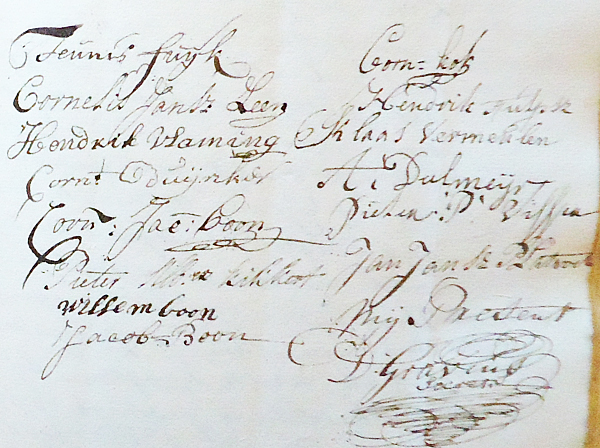 Teunis fuyk
Cornelis Jantz Leen
Hendrik Vlaming
Corn: Duijnker
Coorn: Jac: boon
Pieter kikkert
willem boon
Jacob Boon
Corn= kok
Hendrik
Klaas Vermeulen
A: Dalmeyr
Pieter P Visser
Jan Jansz
Mij Present
D: Gravius